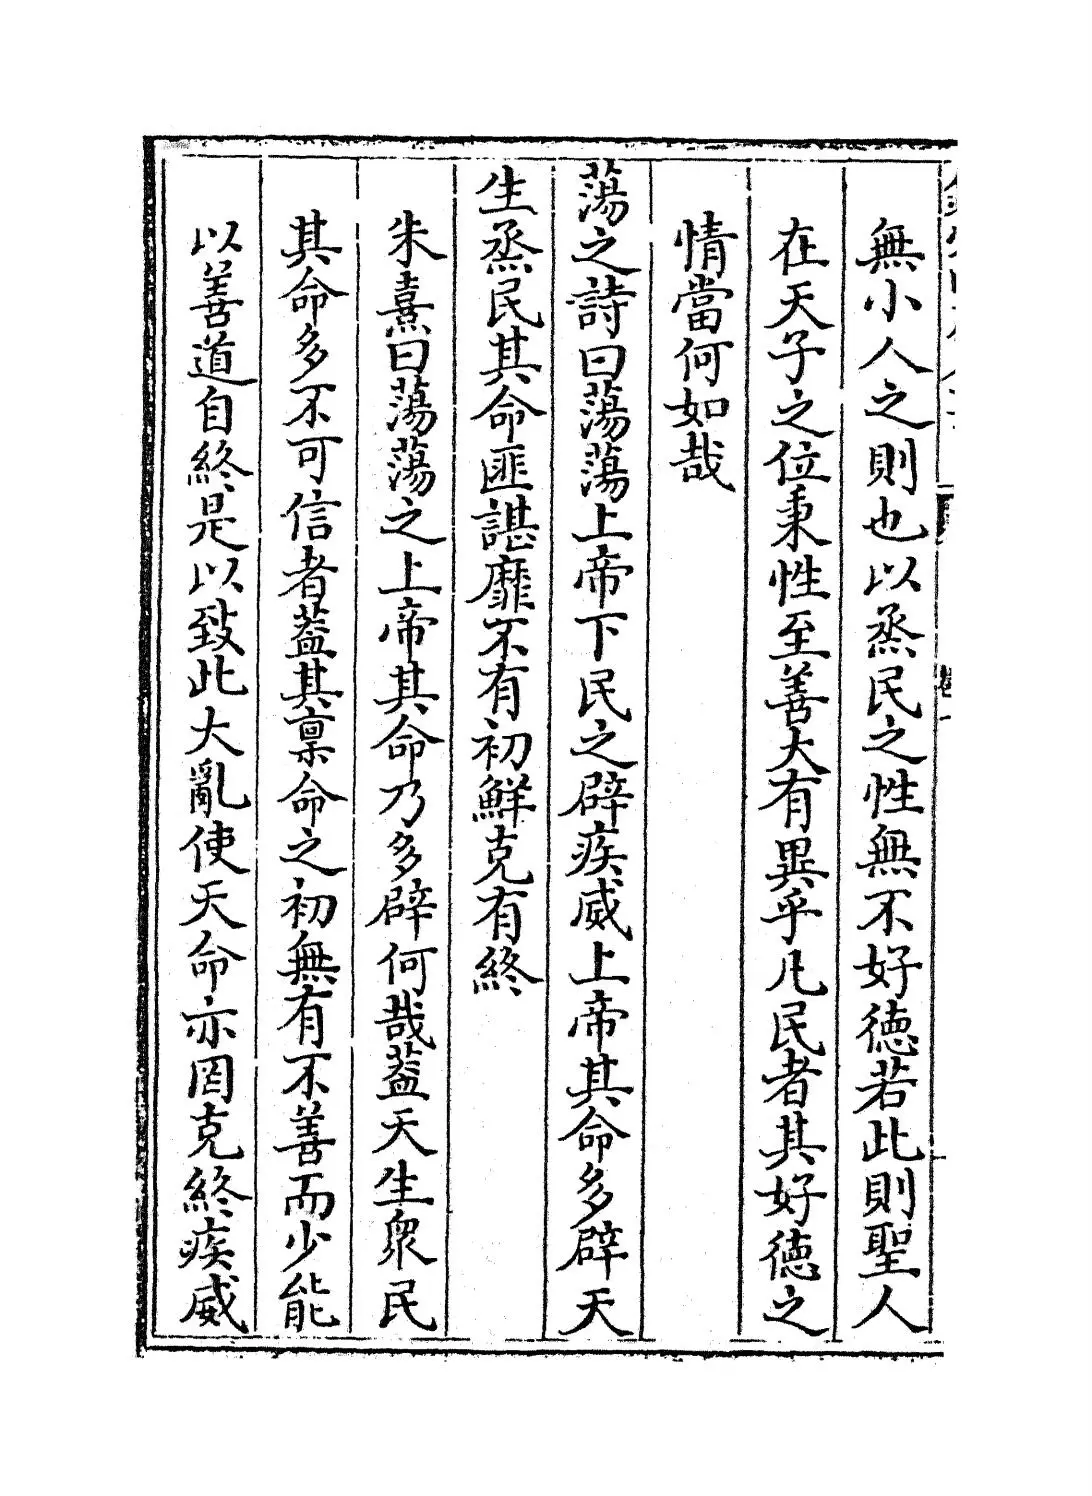 無小人之則也以烝民之性無不好德若此則聖人
在天子之位秉性至善大有異乎凡民者其好德之
情當何如哉
蕩之詩曰蕩蕩上帝下民之辟疾威上帝其命多辟天
生烝民其命匪諶靡不有初鮮克有終
朱熹曰蕩蕩之上帝其命乃多辟何哉葢天生衆民
其命多不可信者葢其稟命之初無有不善而少能
以善道自終是以致此大亂使天命亦罔克終疾威